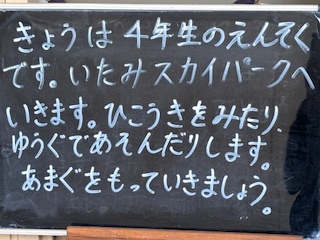 きょうは4年生のえんそく
です。いたみスカイパークへ
いきます。ひこうきをみたり、
ゆうぐであそんだりします。
あまぐをもっていきましょう。